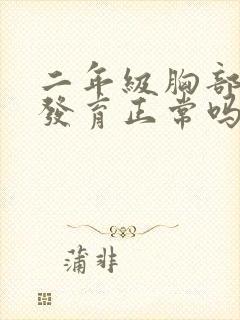 二年級胸部
發育正常吗
蒲非